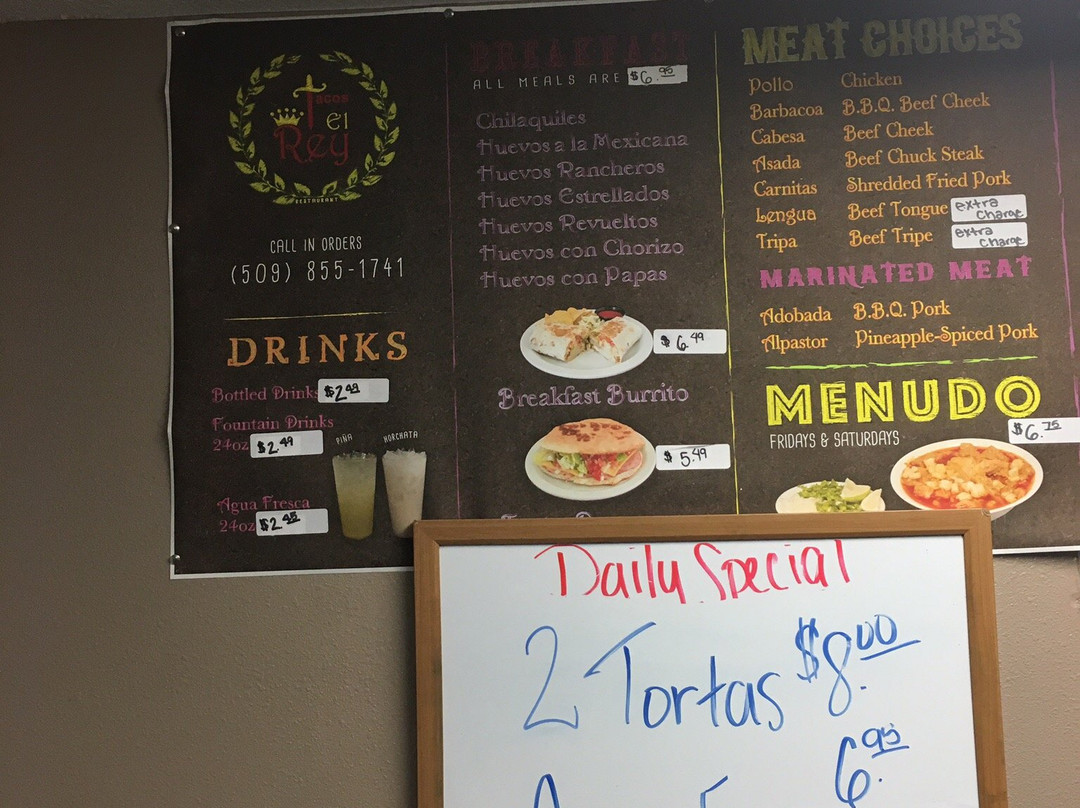 Tacos
El
Rey
RESTAURANT
CALL IN ORDERS
(509) 855-1741
DRINKS
Bottled Drinks $2.49
Fountain Drinks
24oz $2.49
PIÑA HORCHATA
Agua Fresca
24oz $2.45
BREAKFAST
ALL MEALS ARE $6.95
Chilaquiles
Huevos a la Mexicana
Huevos Rancheros
Huevos Estrellados
Huevos Revueltos
Huevos con Chorizo
Huevos con Papas
$6.49
Breakfast Burrito
$5.49
MEAT CHOICES
Pollo Chicken
Barbacoa B.B.Q. Beef Cheek
Cabesa Beef Cheek
Asada Beef Chuck Steak
Carnitas Shredded Fried Pork
Lengua Beef Tongue extra charge
Tripa Beef Tripe extra charge
MARINATED MEAT
Adobada B.B.Q. Pork
Alpastor Pineapple-Spiced Pork
MENUDO
FRIDAYS & SATURDAYS
$6.75
Daily Special
2 Tortas $8.00
6.95